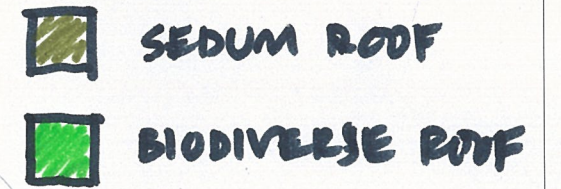 SEDUM ROOF
BIODIVERSE ROOF